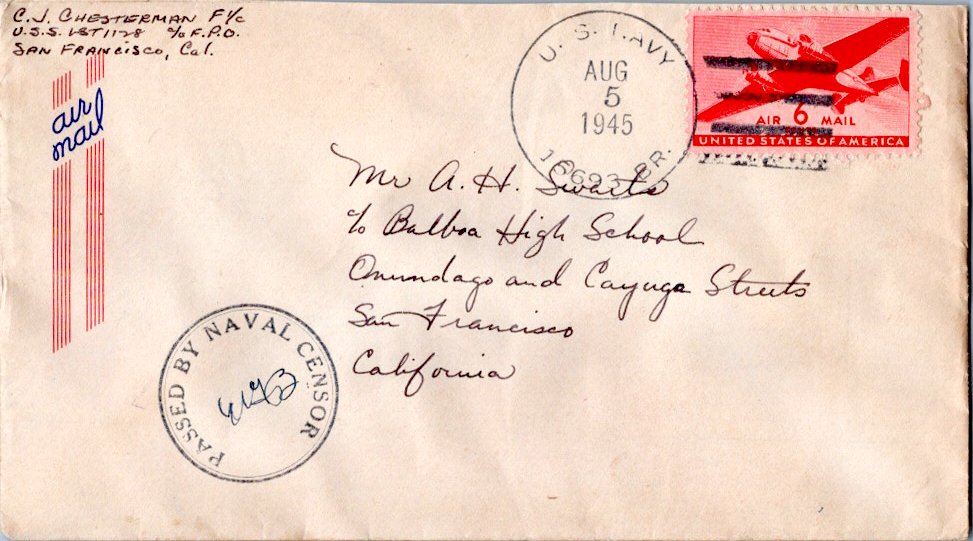 C. J. CHESTERMAN F 1/c
U.S.S. LST 1128 c/o F.P.O.
SAN FRANCISCO, CAL.
air
mail
U. S. NAVY
AUG
5
1945
16693 BR.
AIR 6 MAIL
UNITED STATES OF AMERICA
Mr A. H. Swarts
c/o Balboa High School
Onundago and Cayuga Streets
San Francisco
California
PASSED BY NAVAL CENSOR